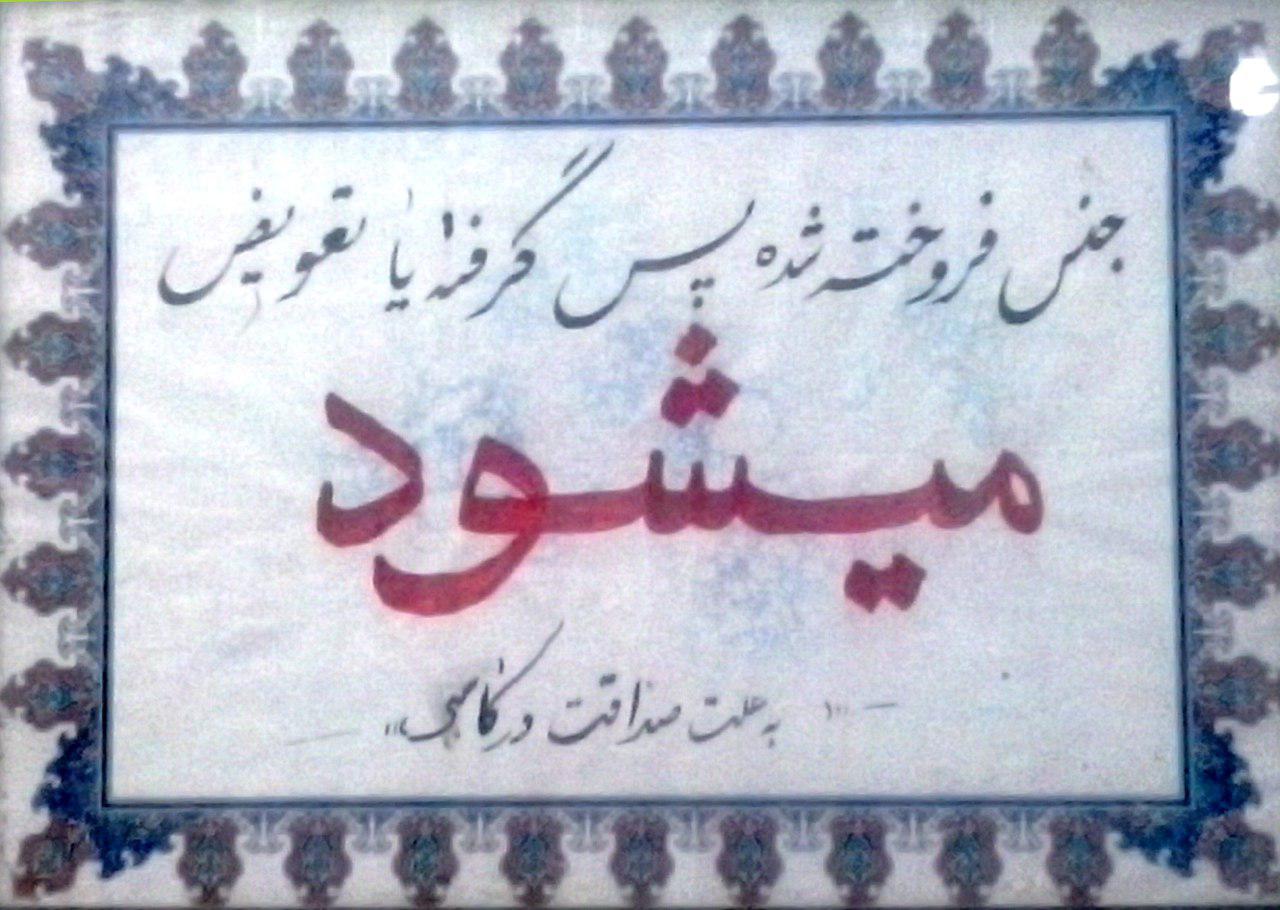 جنس فروخته شده پس گرفته یا تعویض
میشود
به علت صداقت در کاسبی